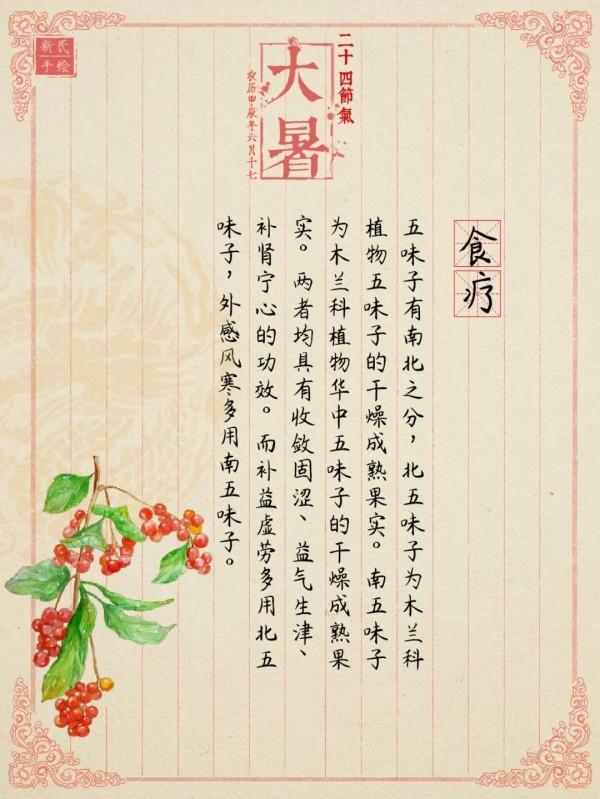 新民
手绘
二十四節氣
大暑
农历甲辰年六月十七
食疗
五味子有南北之分，北五味子为木兰科
植物五味子的干燥成熟果实。南五味子
为木兰科植物华中五味子的干燥成熟果
实。两者均具有收敛固涩、益气生津、
补肾宁心的功效。而补益虚劳多用北五
味子，外感风寒多用南五味子。